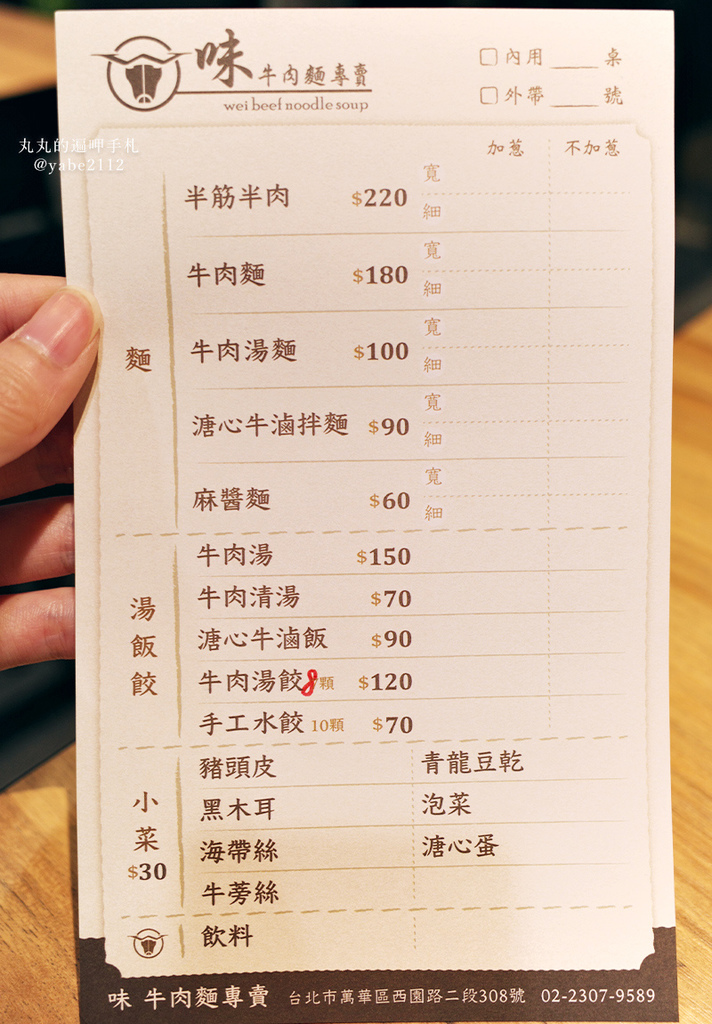 味 牛肉麵專賣
wei beef noodle soup
內用____桌
外帶____號
丸丸的遍呷手札
@yabe2112
加蔥 不加蔥
麵
半筋半肉 $220 寬 細
牛肉麵 $180 寬 細
牛肉湯麵 $100 寬 細
溏心牛滷拌麵 $90 寬 細
麻醬麵 $60 寬 細
湯飯餃
牛肉湯 $150
牛肉清湯 $70
溏心牛滷飯 $90
牛肉湯餃8顆 $120
手工水餃 10顆 $70
小菜 $30
豬頭皮 青龍豆乾
黑木耳 泡菜
海帶絲 溏心蛋
牛蒡絲
飲料
味 牛肉麵專賣 台北市萬華區西園路二段308號 02-2307-9589